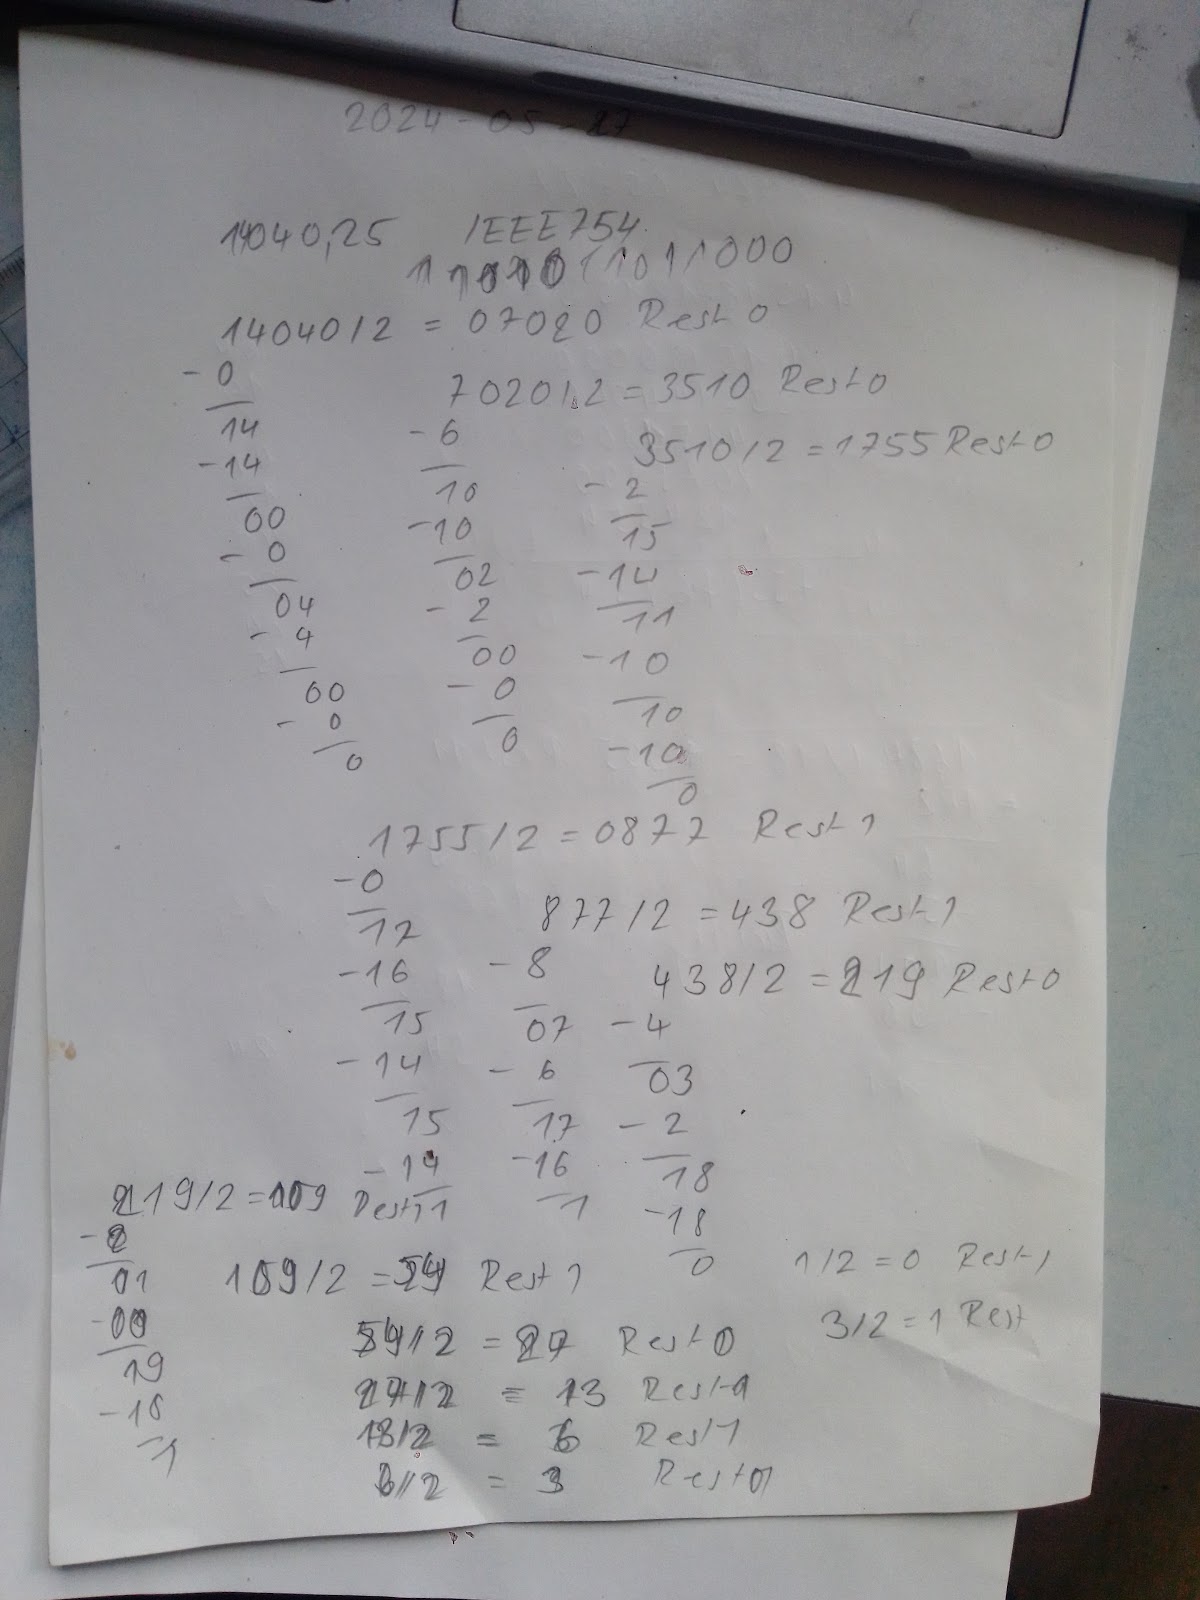 2024-05-27
14040,25 IEEE754
11011011011000
14040/2 = 07020 Rest 0
-0
14
-14
00
-0
04
-4
00
-0
0
7020/2 = 3510 Rest 0
-6
10
-10
02
-2
00
-0
0
3510/2 = 1755 Rest 0
-2
15
-14
11
-10
10
-10
0
1755/2 = 0877 Rest 1
-0
17
-16
15
-14
15
-14
1
877/2 = 438 Rest 1
-8
07
-6
17
-16
1
438/2 = 219 Rest 0
-4
03
-2
18
-18
0
219/2 = 109 Rest 1
-2
01
-00
19
-18
1
109/2 = 54 Rest 1
54/2 = 27 Rest 0
27/2 = 13 Rest 1
13/2 = 6 Rest 1
6/2 = 3 Rest 0
1/2 = 0 Rest 1
3/2 = 1 Rest